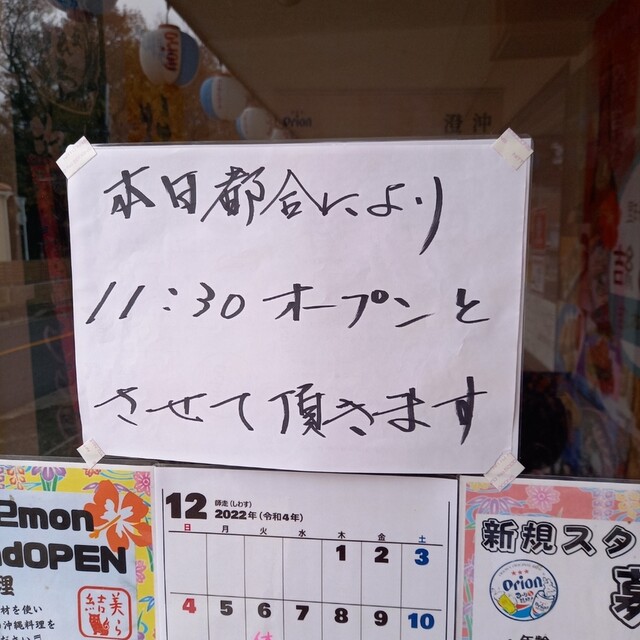 Orion
Orion
澄 沖
本日都合により
11:30 オープンと
させて頂きます
2mon
dOPEN
理
材を使い
沖縄料理を
ださい♬
美ら
結
12 師走(しわす)
2022年(令和4年)
日 月 火 水 木 金 土
1 2 3
4 5 6 7 8 9 10
休
新規スタ
Orion
募
年齢